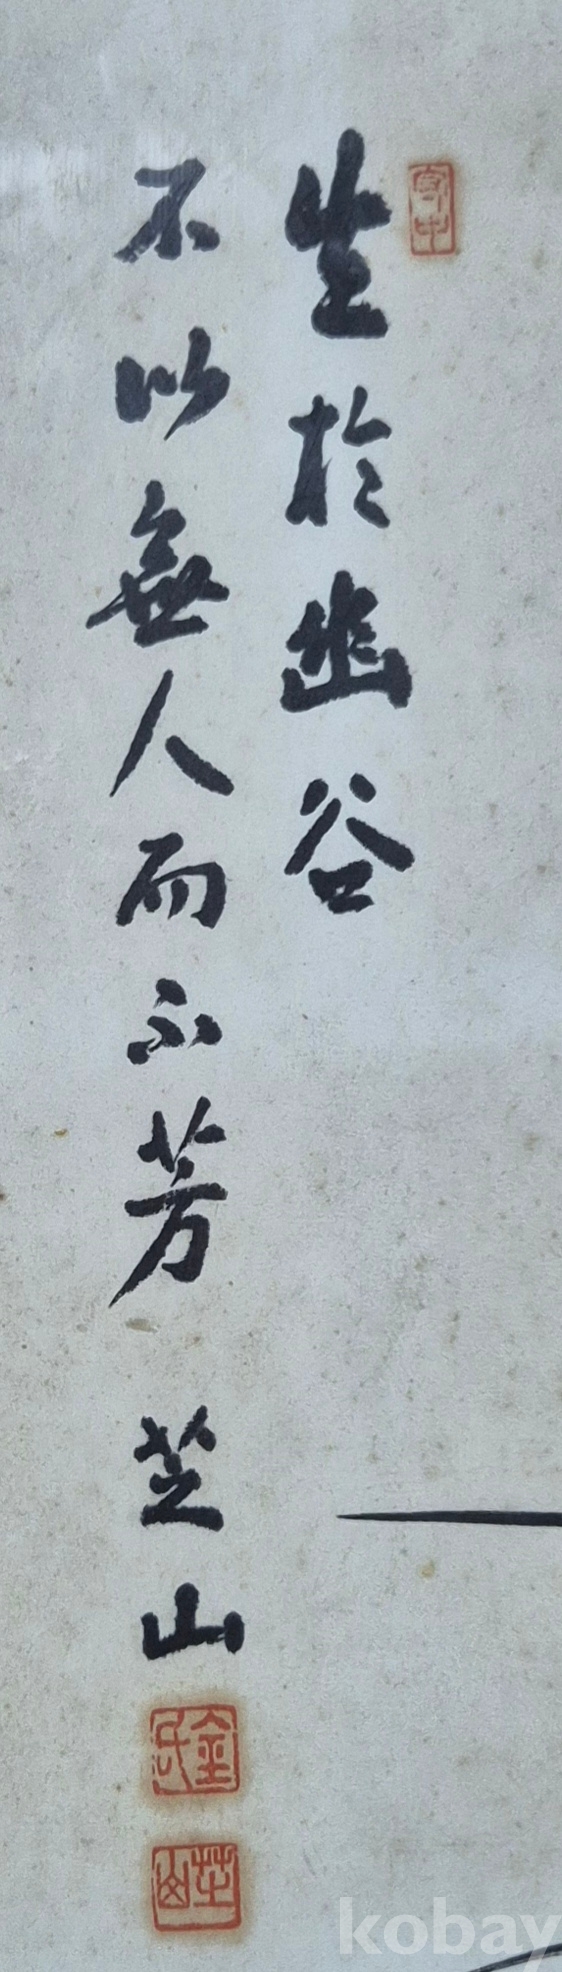 生於幽谷
不以無人而不芳
芝山
金氏
芝山
kobay